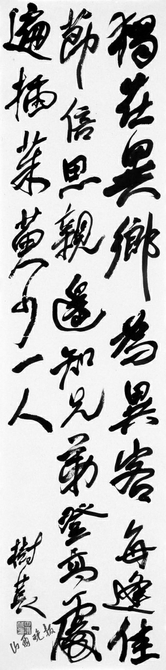 獨在異鄉為異客每逢佳
節倍思親遙知兄弟登高處
遍插茱萸少一人
樹